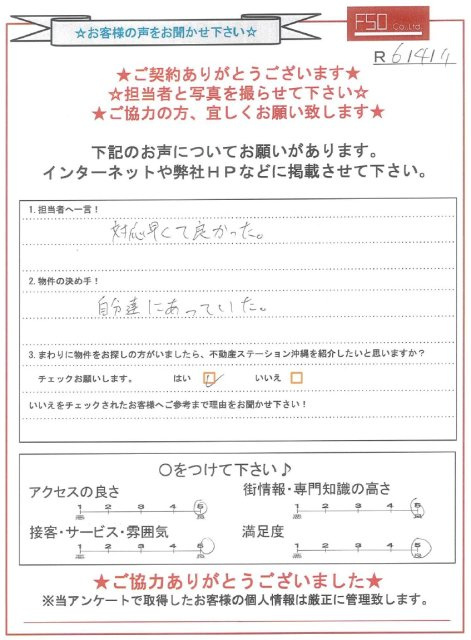 ☆お客様の声をお聞かせ下さい☆
FSO Co.,Ltd.
R 6 1 4 1
★ご契約ありがとうございます★
☆担当者と写真を撮らせて下さい☆
★ご協力の方、宜しくお願い致します★
下記のお声についてお願いがあります。
インターネットや弊社HPなどに掲載させて下さい。
1. 担当者へ一言！
対応早くて良かった。
2. 物件の決め手！
自分達にあっていた。
3. まわりに物件をお探しの方がいましたら、不動産ステーション沖縄を紹介したいと思いますか？
チェックお願いします。 はい いいえ
いいえをチェックされたお客様へご参考まで理由をお聞かせ下さい！
〇をつけて下さい♪
アクセスの良さ 街情報・専門知識の高さ
1 2 3 4 5 1 2 3 4 5
悪 良 悪 良
接客・サービス・雰囲気 満足度
1 2 3 4 5 1 2 3 4 5
悪 良 悪 良
★ご協力ありがとうございました★
※当アンケートで取得したお客様の個人情報は厳正に管理致します。